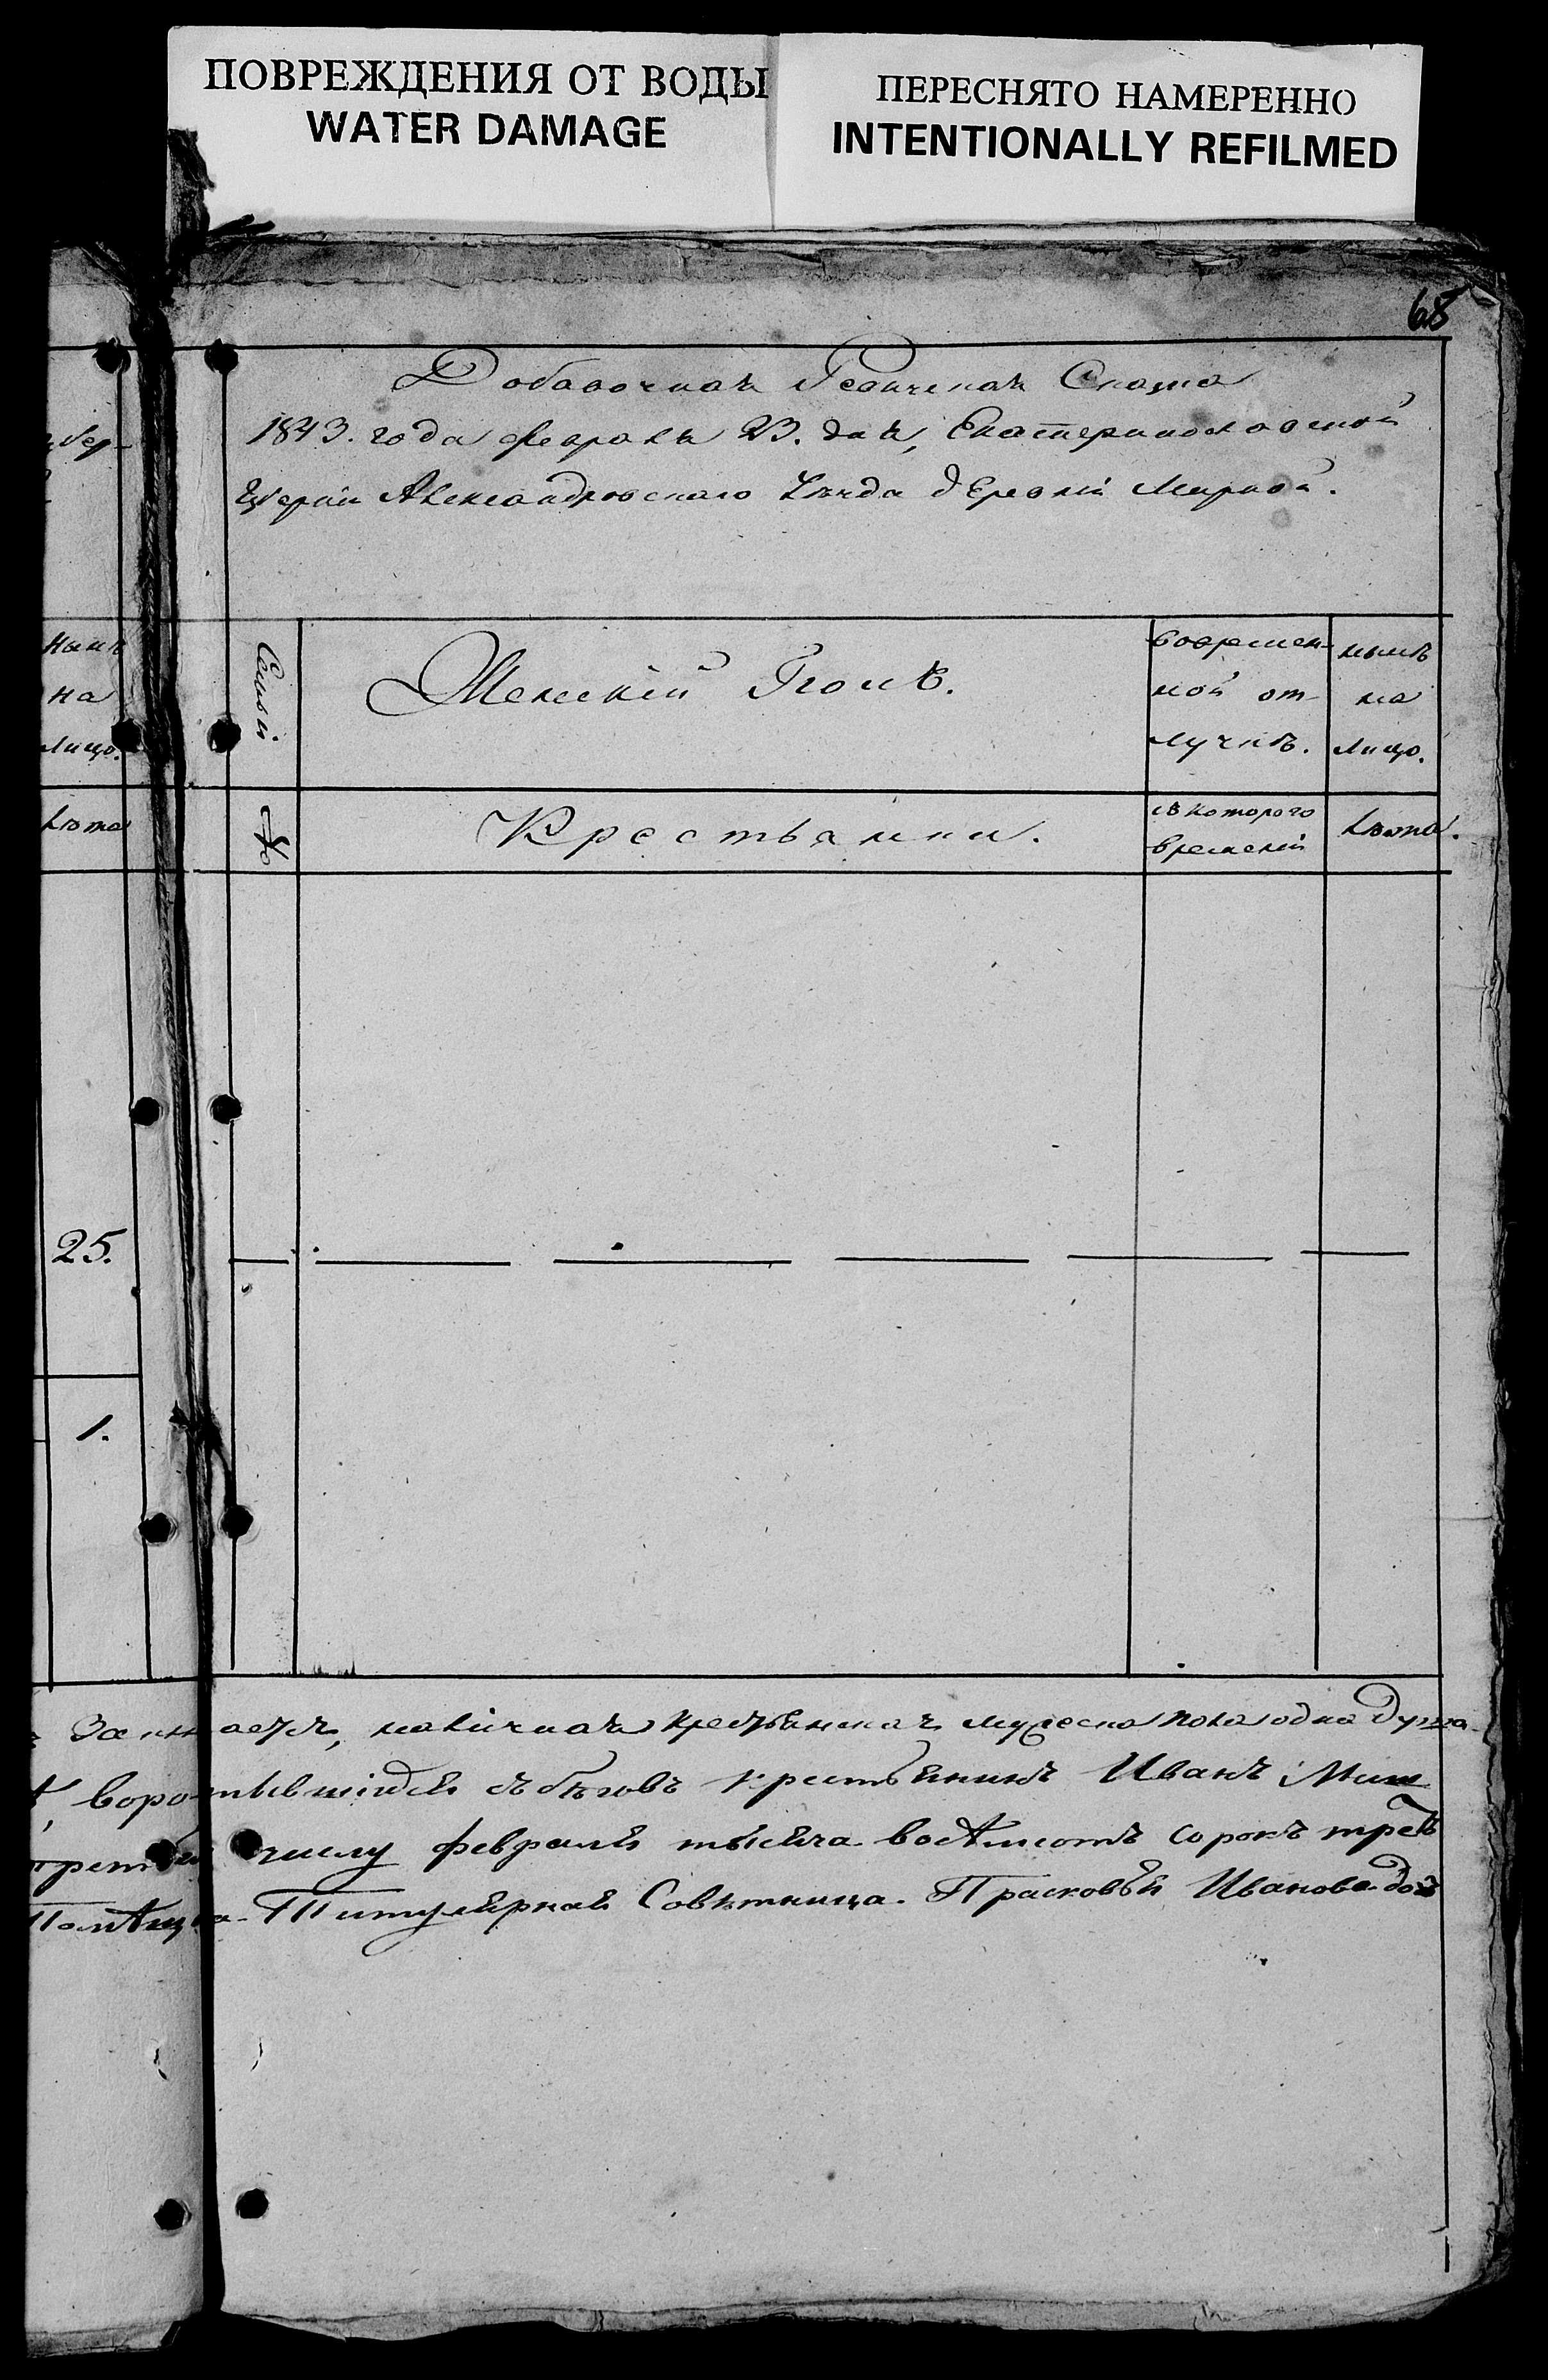 ПОВРЕЖДЕНИЯ ОТ ВОДЫ
WATER DAMAGE
ПЕРЕСНЯТО НАМЕРЕННО
INTENTIONALLY REFILMED
68
Добавочная Ревижская Сказка
1843. года февраля 23. дня, Екатеринославской
Губерніи Александровского Уѣзда деревни Мирной.
нынѣ
на
лицо.
Лѣта
Семьи
Женскій Полъ.
во времен-
ной от-
лучкѣ.
нынѣ
на
лицо.
№
Крестьянки.
съ которого
времени
Лѣта.
25.
1.
наличная крестьянская мужеска пола одна душа
воротившійся съ бѣговъ крестьянинъ Иванъ
числу февраля тысяча восемьсотъ сорокъ
Титулярная Совѣтница Прасковья Иванова